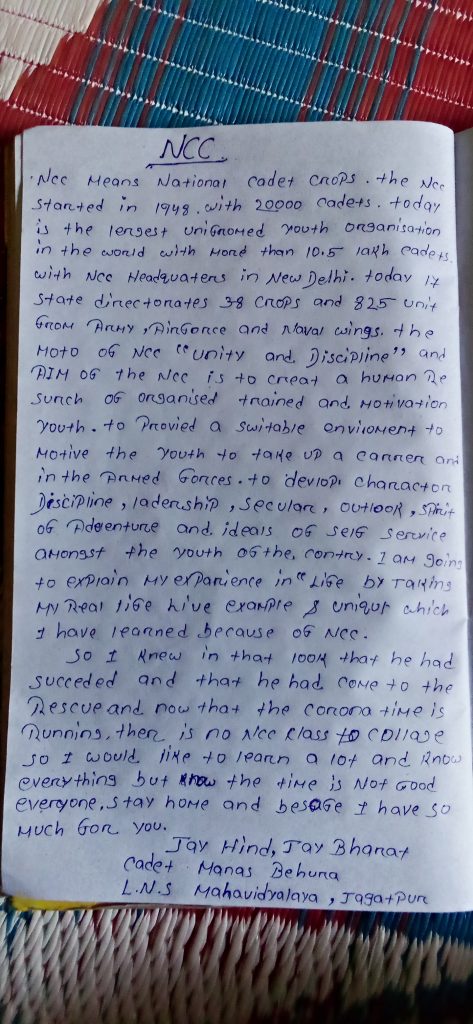 NCC
Ncc Means National cadet crops. the Ncc
started in 1948. with 20000 cadets. today
is the lergest uniformed youth organisation
in the world with more than 10.5 lakh cadets.
with Ncc Headquaters in New Delhi. today 17
state directorates 38 crops and 825 unit
from Army, Airforce and Naval wings. the
Moto of Ncc "unity and Discipline" and
AIM of the Ncc is to creat a human Re
surch of organised trained and Motivation
youth. to Provied a suitable enviroment to
Motive the youth to take up a carrer and
in the Armed forces. to devlop charactor
Discipline, ladership, secular, outlook, spirit
of Adventure and ideals of self service
amongst the youth of the contry. I am going
to explain my exparience in "Life by Taking
my Real life hive example & uniqur which
I have learned because of Ncc.
So I knew in that look that he had
succeded and that he had come to the
Rescue and now that the corona time is
Running, there is no Ncc class to collage
so I would like to learn a lot and know
everything but know the time is Not Good
everyone, stay home and besafe I have so
much for you.
Jay Hind, Jay Bharat
Cadet Manas Behura
L.N.S Mahavidyalaya, Jagatpur